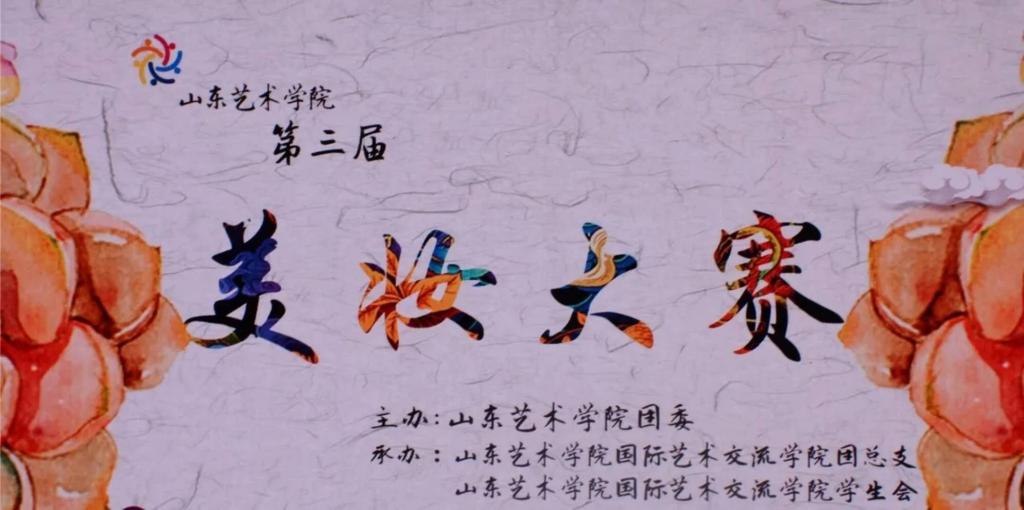 山东艺术学院
第三届
美妆大赛
主办:山东艺术学院团委
承办:山东艺术学院国际艺术交流学院团总支
山东艺术学院国际艺术交流学院学生会